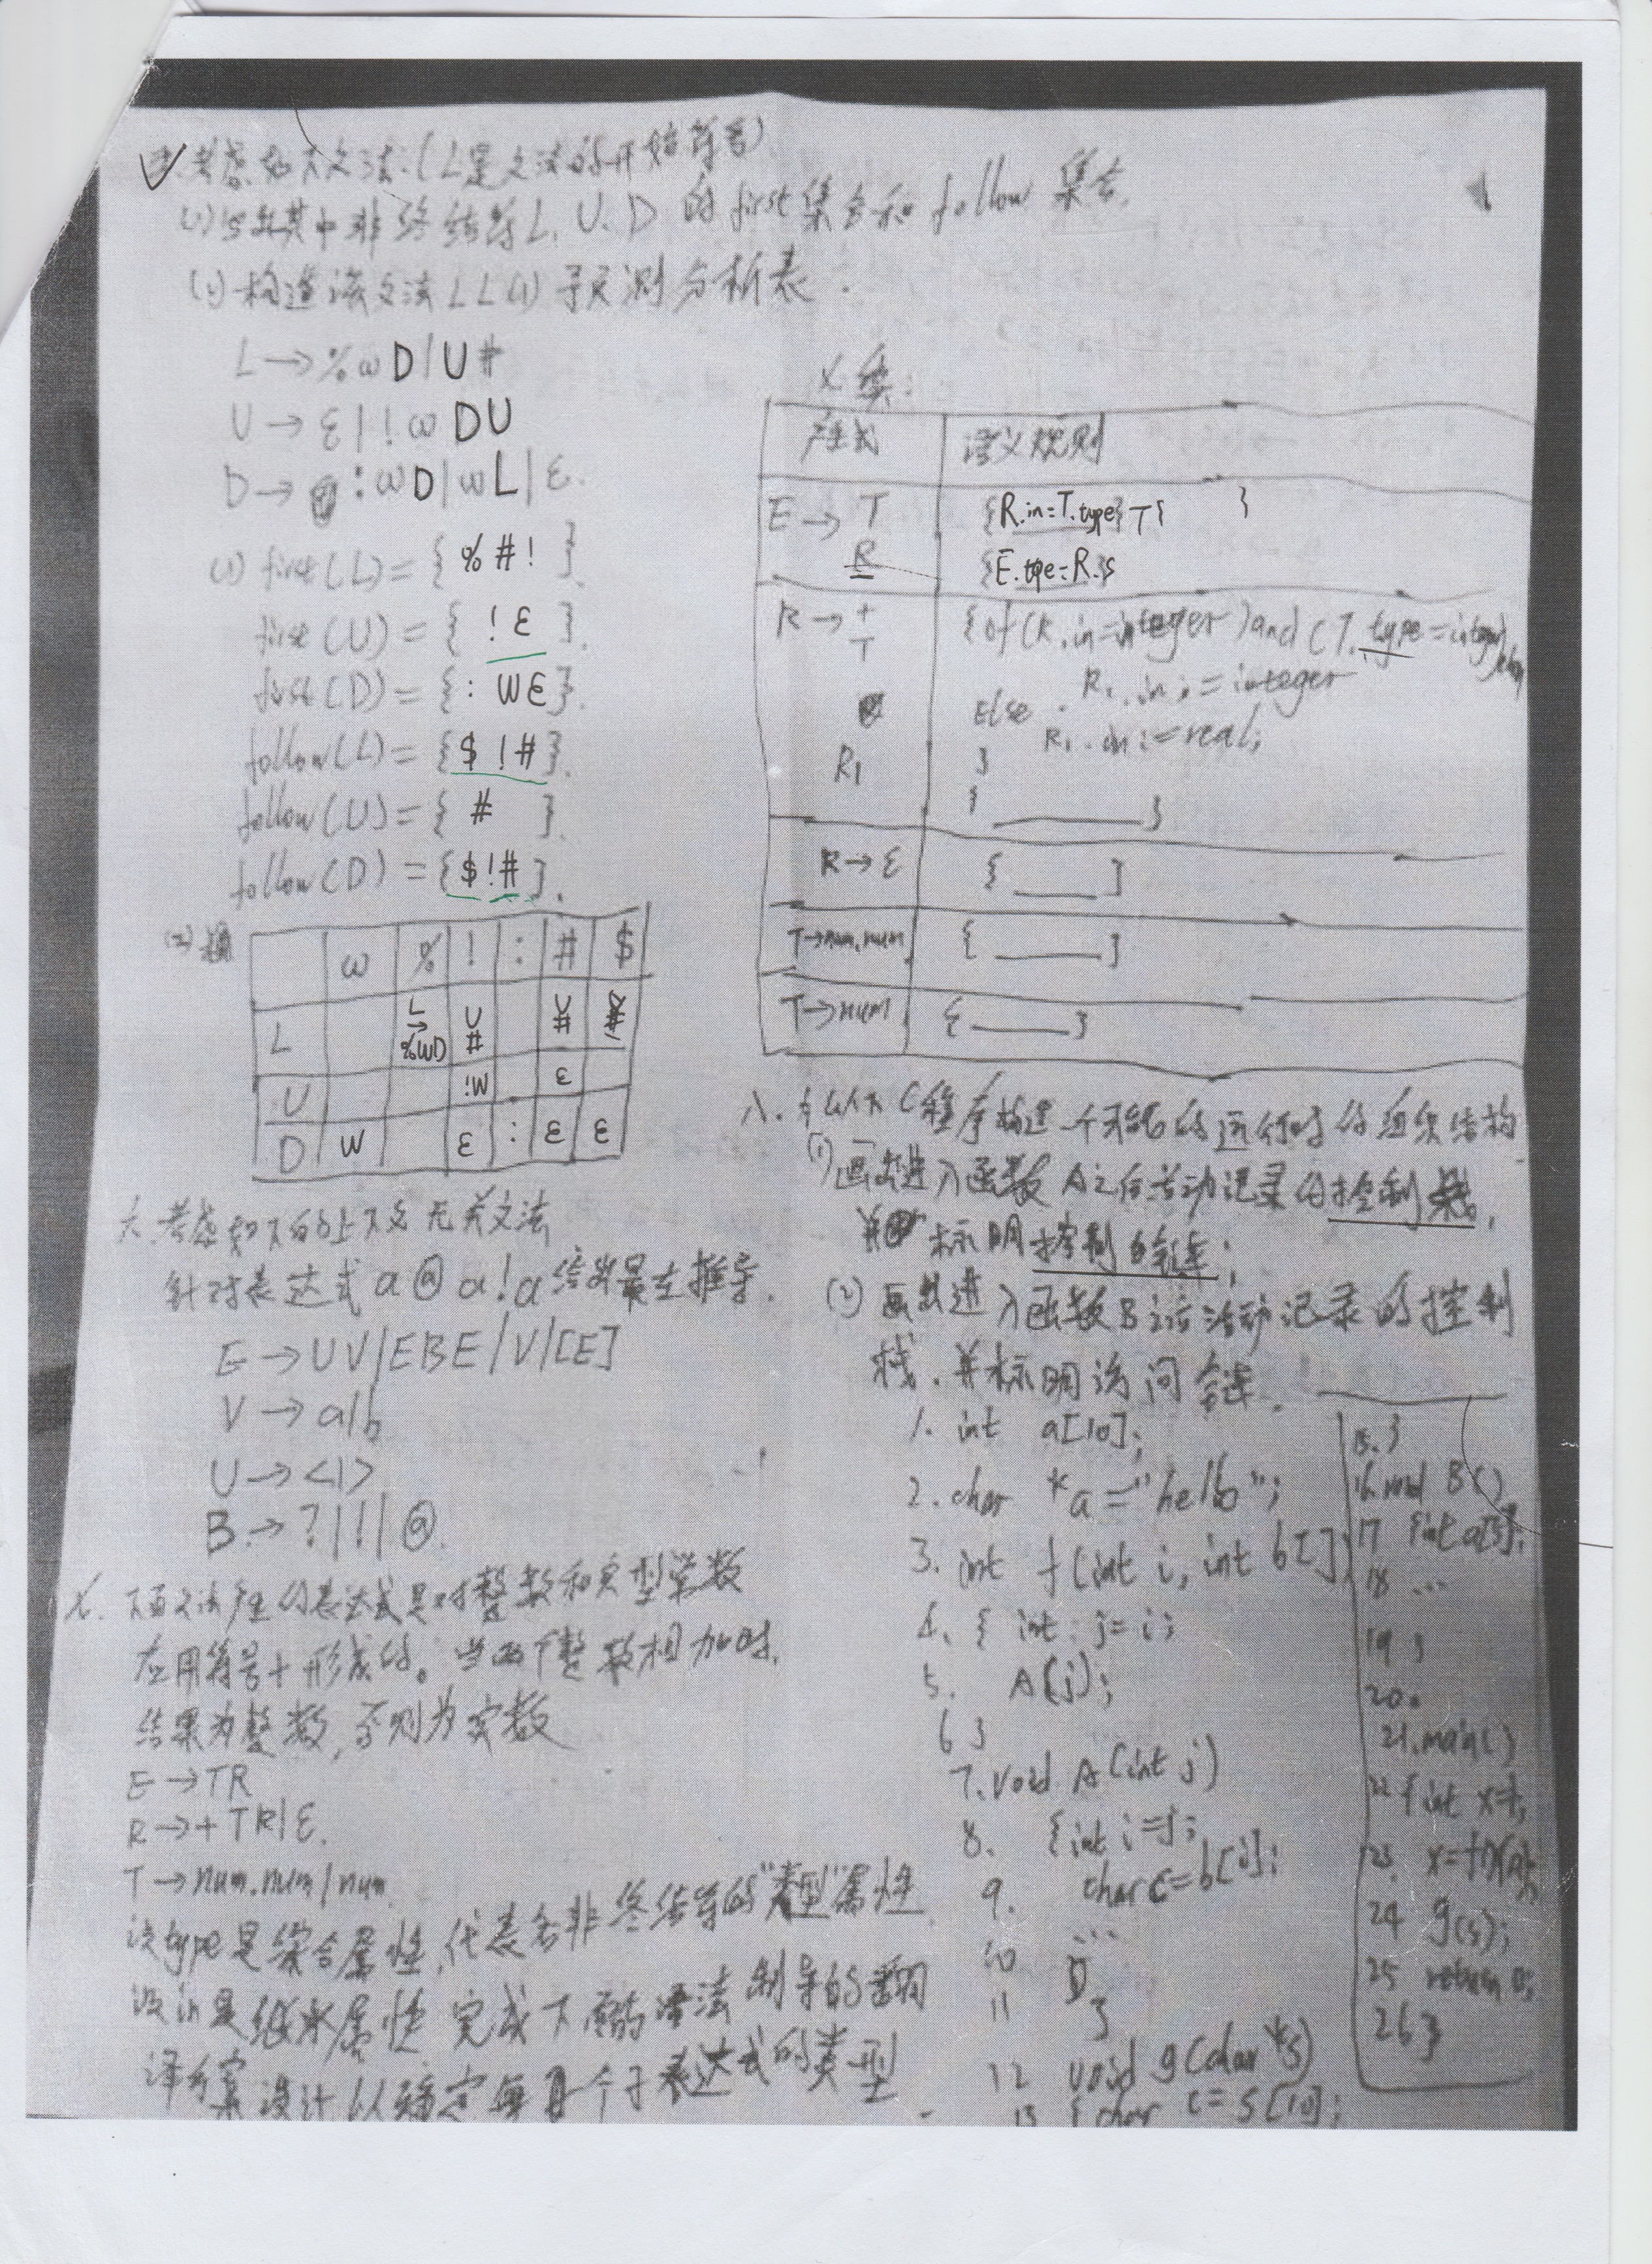 考虑如下文法:(L是文法的开始符号)
(1)写出其中非终结符L、U、D 的first集合和follow 集合.
(2)构造该文法LL(1)预测分析表.
L→%ωD|U#
U→ε|!ωDU
D→:ωD|ωL|ε.
(1) first(L)={ %#! }.
first(U)={ !ε }.
first(D)={: Wε}.
follow(L)={$ !#}.
follow(U)={ # }.
follow(D)={$!#}.
(2)
ω % ! : # $
L L→%WD U# U#
U !W ε
D W ε : ε ε
六.考虑如下的上下文无关文法
针对表达式 a@a!a给出最左推导.
E→UV|EBE|V|[E]
V→a|b
U→<|>
B→?|!|@.
七. 下面文法产生的表达式是对整数和实型常数
应用符号+形成的。当两个整数相加时,
结果为整数,否则为实数
E→TR
R→+TR|ε.
T→num.num|num.
设type是综合属性,代表各非终结符的"类型"属性
设in是继承属性 完成下面的语法制导的翻
译方案 设计以确定每个子表达式的类型
七续:
产生式 语义规则
E→ T {R.in=T.type} T{ }
R {E.tpe=R.s
R→ + {if(R.in=integer)and(T.type=integer)then
T R1.in:=integer
Else R1.in:=real;
R1 }
{ ______}
R→ε { ____ }
T→num.num { _____}
T→num { _____}
八. 为以下C程序构造一个可能的运行时的组织结构
(1)画出进入函数A之后活动记录的控制栈,
并标明控制链;
(2) 画出进入函数B之后活动记录的控制
栈.并标明访问链.
1. int a[10];
2. char *a="hello";
3. int f(int i, int b[])
4. { int j=i;
5. A(j);
6 }
7. void A(int j)
8. {int i=j;
9. char c=b[i];
10 ...
11 }
12 void g(char *s)
13 {char c=s[10];
15. }
16. void B()
17 {int a[5];
18 ...
19 }
20.
21.main()
22 {int x=1;
23. x=f(x,a);
24 g(s);
25 return 0;
26 }